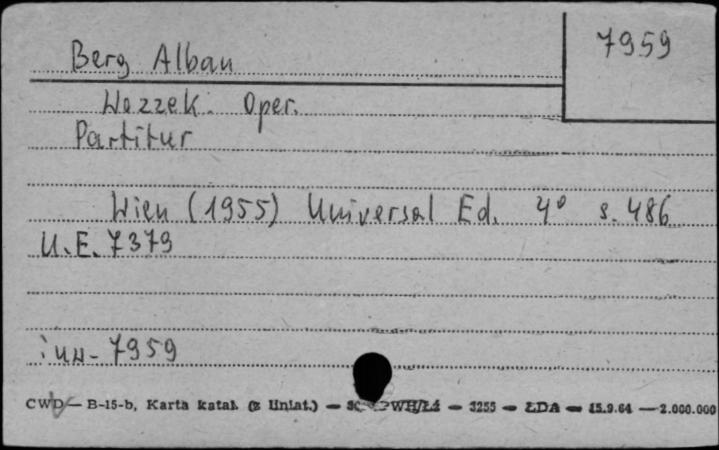 7959
Berg Alban
Wozzek. Oper.
Partitur
Wien (1955) Universal Ed. 4° s. 486
U.E. 7379
inw. 7959
CWD — B-15-b, Karta katal. (z liniat.) — PWH/Łź — 3255 — ŁDA — 15.9.64 — 2.000.000